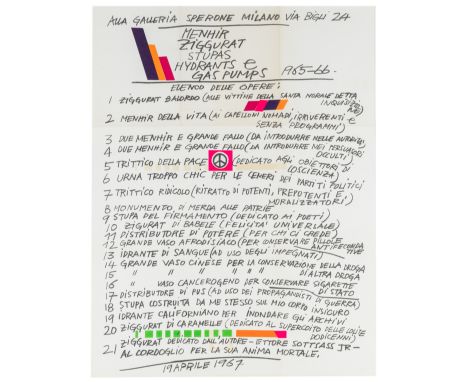 ALLA GALLERIA SPERONE MILANO VIA BIGLI 21
MENHIR
ZIGGURAT
STUPAS
HYDRANTS e
GAS PUMPS 1965-66.
ELENCO DELLE OPERE:
1 ZIGGURAT BALORDO (ALLE VITTIME DELLA SANTA MORALE DETTA
INQUISIZIONE)
2 MENHIR DELLA VITA (AI CAPELLONI NOMADI, IRRIVERENTI e
SENZA PROGRAMMI)
3 DUE MENHIR E GRANDE FALLO (DA INTRODURRE NELLE AUTORITÀ)
4 DUE MENHIR E GRANDE FALLO (DA INTRODURRE NEI PERSUASORI
OCCULTI)
5 TRITTICO DELLA PACE (DEDICATO AGLI OBIETTORI DI
COSCIENZA)
6 URNA TROPPO CHIC PER LE CENERI DEI PARTITI POLITICI
7 TRITTICO RIDICOLO (RITRATTO DI POTENTI, PREPOTENTI E,
MORALIZZATORI)
8 MONUMENTO DI MERDA ALLE PATRIE
9 STUPA DEL FIRMAMENTO (DEDICATO AI POETI)
10 ZIGURAT DI BABELE (FELICITA' UNIVERSALE)
11 DISTRIBUTORE DI POTERE (PER CHI CI CREDE)
12 GRANDE VASO AFRODISIACO (PER CONSERVARE PILLOLE
ANTIFECONDATIVE
13 IDRANTE DI SANGUE (AD USO DEGLI IMPEGNATI)
14 GRANDE VASO CINESE PER LA CONSERVAZIONE DELLA DROGA
15 " " " " " DI ALTRA DROGA
16 " VASO CANCEROGENO PER CONSERVARE SIGARETTE
DI STATO
17 DISTRIBUTORE DI PUS (AD USO DEI PROPAGANDISTI DI GUERRA)
18 STUPA COSTRUITA DA ME STESSO SUL MIO CORPO INSICURO
19 IDRANTE CALIFORNIANO PER INONDARE GLI ARCHIVI
20 ZIGGURAT DI CARAMELLE (DEDICATO AL SUPERCOITO DELLE
DODICENNI)
21 ZIGGURAT DEDICATO DALL'AUTORE - ETTORE SOTTSASS JR-
AL CORDOGLIO PER LA SUA ANIMA MORTALE.
19 APRILE 1967